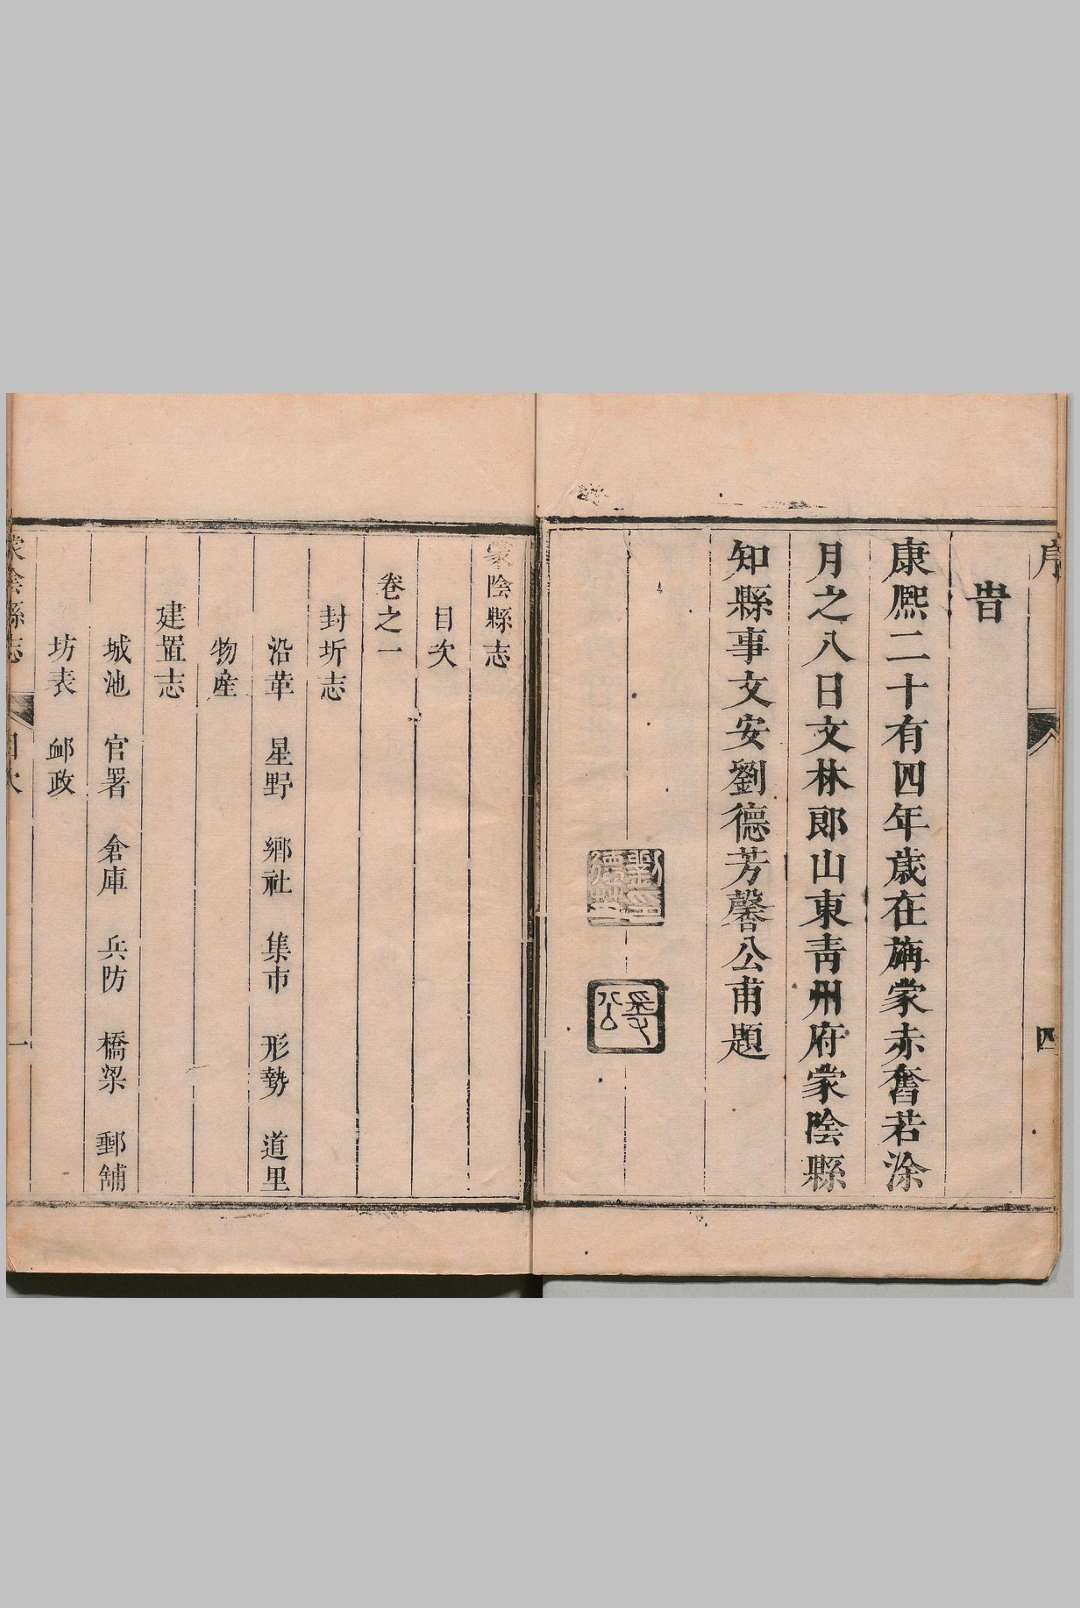 序 四
旹
康熙二十有四年歲在旃蒙赤奮若涂
月之八日文林郎山東靑州府蒙陰縣
知縣事文安劉德芳馨公甫題
劉印德芳
蒙陰縣志
目次
卷之一
封圻志
沿革 星野 鄉社 集市 形勢 道里
物產
建置志
城池 官署 倉庫 兵防 橋梁 郵舖
坊表 卹政
蒙陰縣志 目次 一